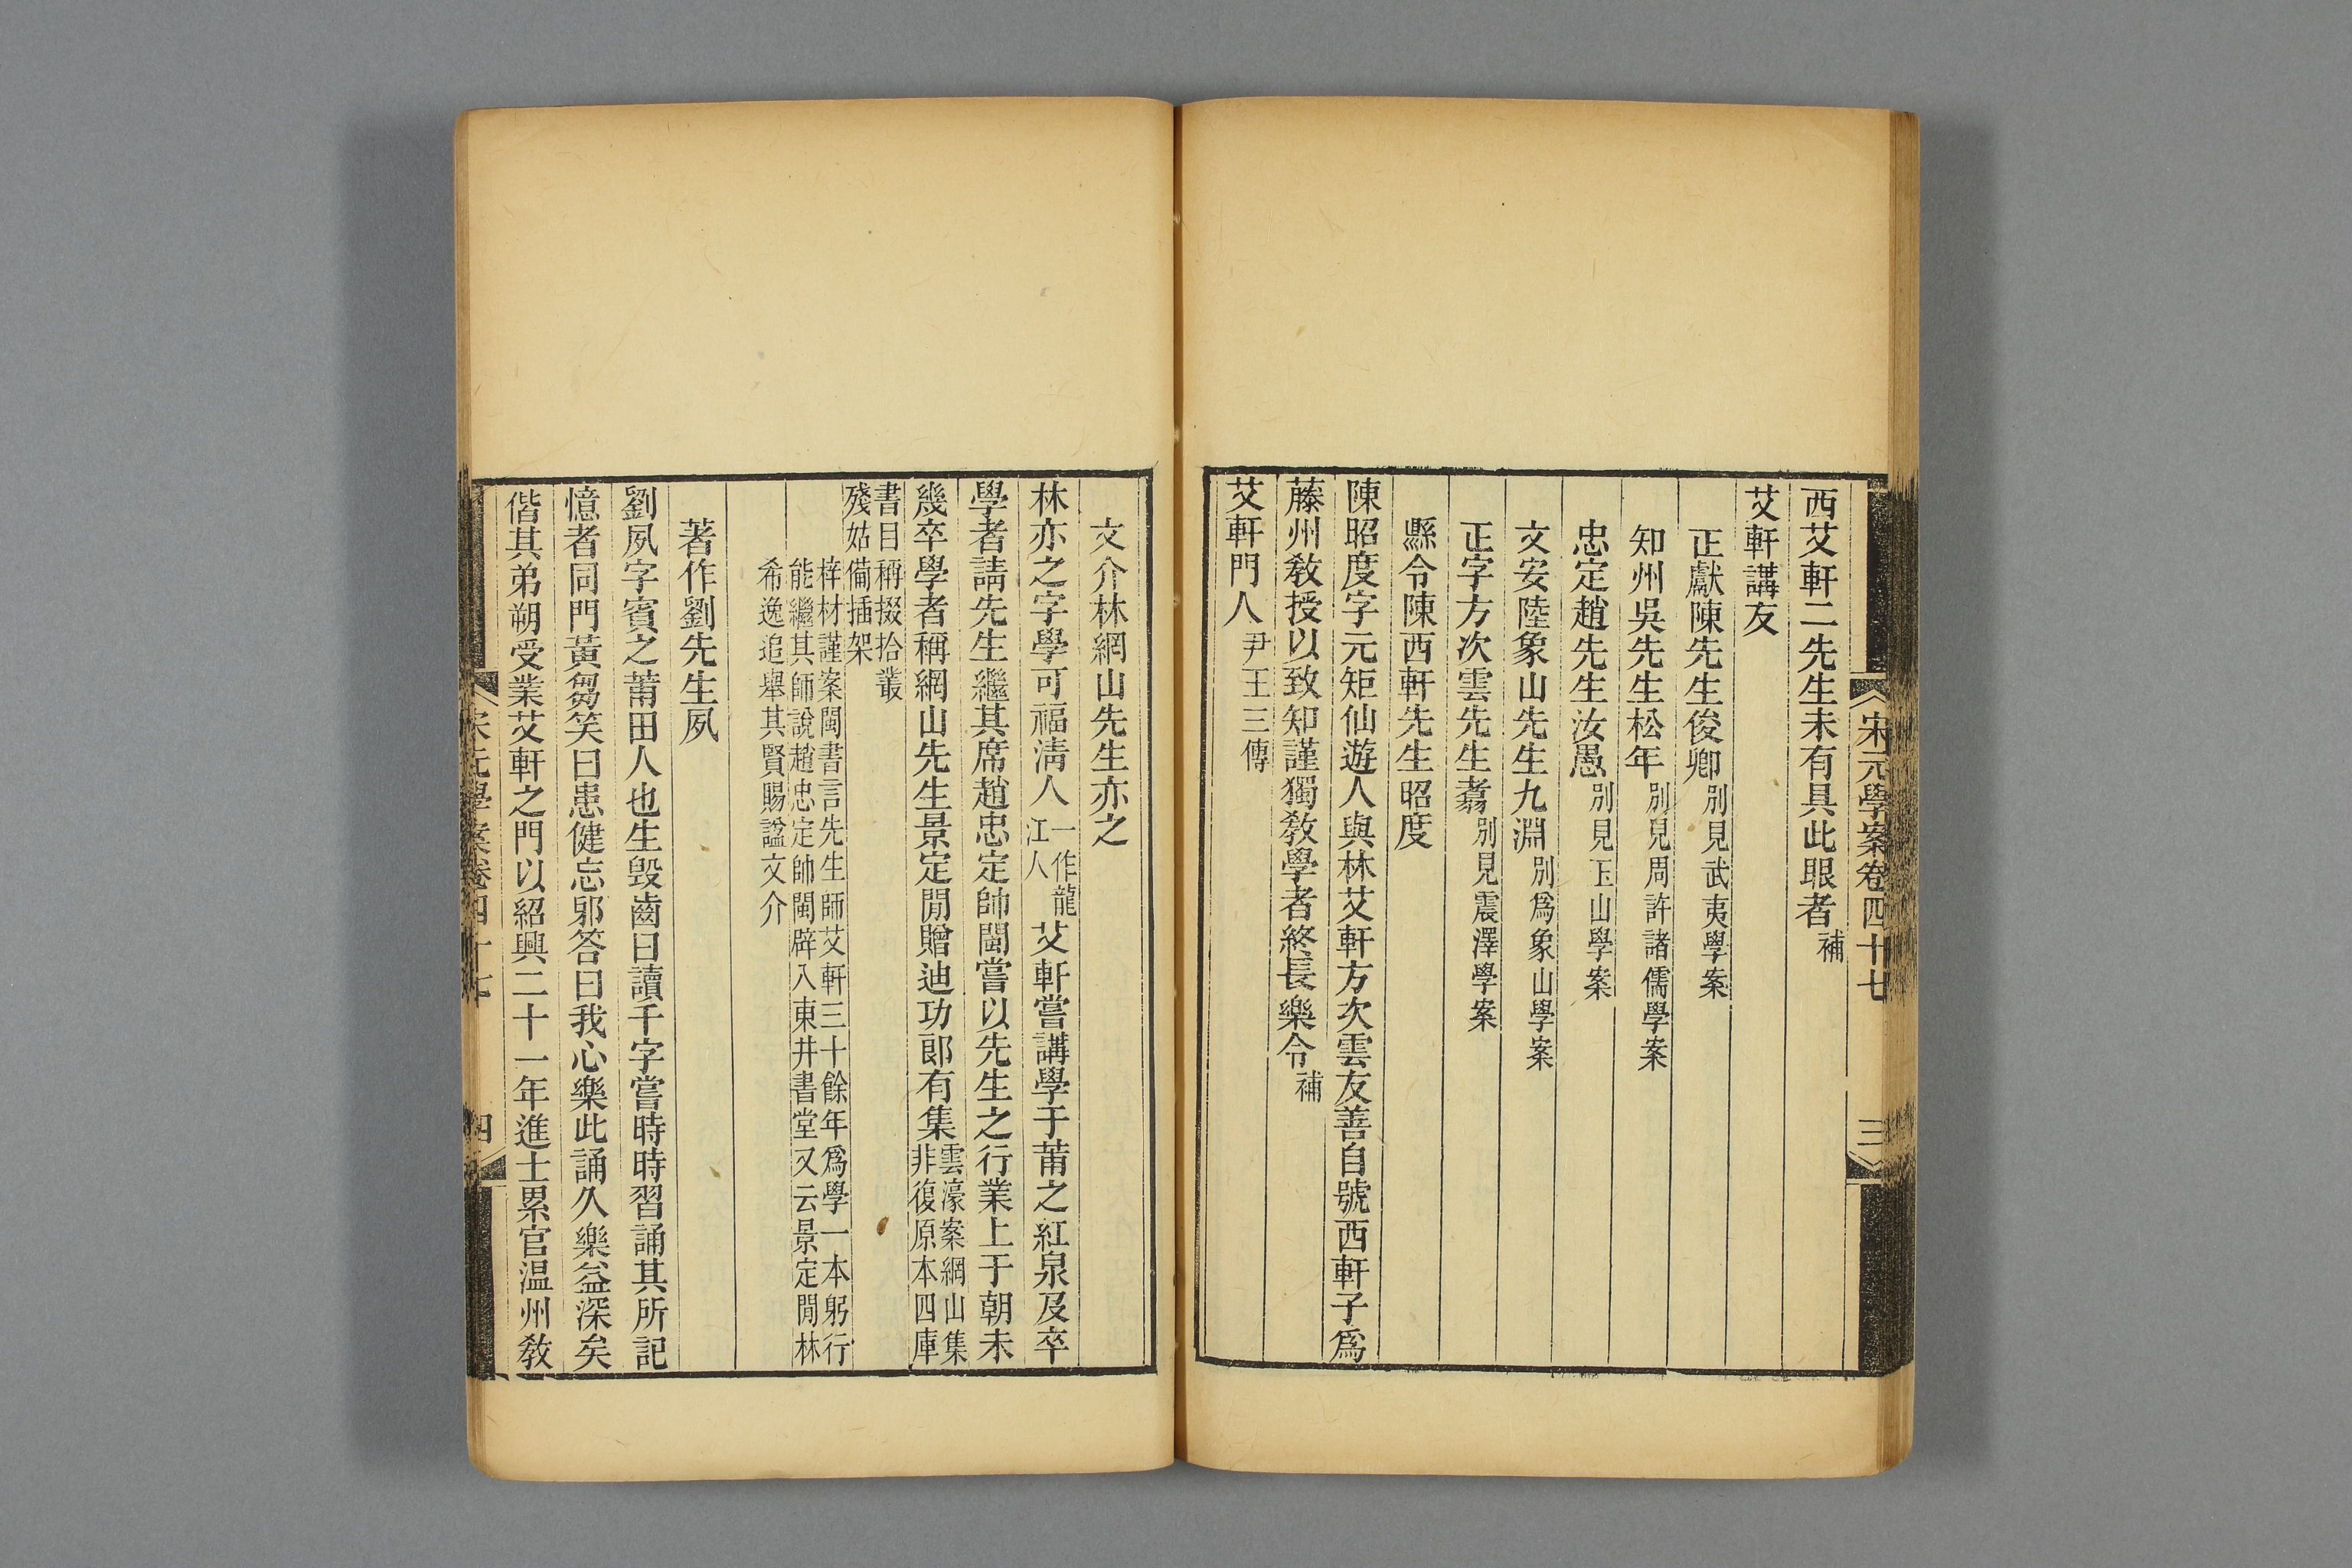 宋元學案卷四十七
三
西艾軒二先生未有具此眼者補
艾軒講友
正獻陳先生俊卿別見武夷學案
知州吳先生松年別見周許諸儒學案
忠定趙先生汝愚別見玉山學案
文安陸象山先生九淵別爲象山學案
正字方次雲先生翥別見震澤學案
縣令陳西軒先生昭度
陳昭度字元矩仙遊人與林艾軒方次雲友善自號西軒子爲
藤州敎授以致知謹獨敎學者終長樂令補
艾軒門人尹王三傳
文介林網山先生亦之
林亦之字學可福淸人一作龍江人艾軒嘗講學于莆之紅泉及卒
學者請先生繼其席趙忠定帥閩嘗以先生之行業上于朝未
幾卒學者稱網山先生景定閒贈迪功郞有集雲濠案網山集非復原本四庫
書目稱掇拾叢殘姑備插架
梓材謹案閩書言先生師艾軒三十餘年爲學一本躬行
能繼其師說趙忠定帥閩辟入東井書堂又云景定閒林
希逸追舉其賢賜諡文介
著作劉先生夙
劉夙字賓之莆田人也生毁齒日讀千字嘗時時習誦其所記
憶者同門黃芻笑曰患健忘郞答曰我心樂此誦久樂益深矣
偕其弟朔受業艾軒之門以紹興二十一年進士累官温州敎
宋元學案卷四十七
四